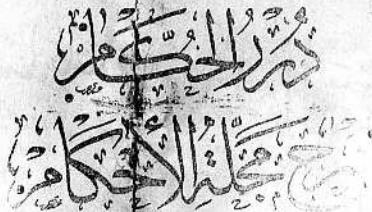 دُرَرُ الحُكَّامِ
شرح مَجَلَّةِ الأَحْكَامِ